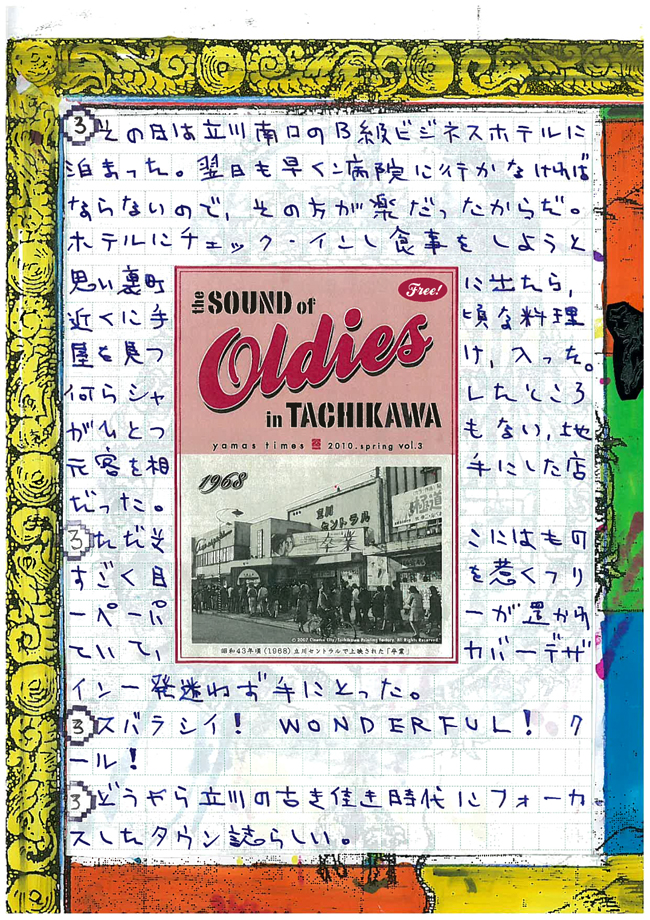 3 その日は立川南口のB級ビジネスホテルに
泊まった。翌日も早くに病院に行かなければ
ならないので、その方が楽だったからだ。
ホテルにチェック・インし食事をしようと
思い裏町に出たら、
近くに手頃な料理
屋を見つけ、入った。
何らシャレたところ
がひとつもない、地
元客を相手にした店
だった。
3 ただそこにはもの
すごく目を惹くフリ
ーペーパーが置かれ
ていて、カバーデザ
イン一発迷わず手にとった。
3 スバラシイ! WONDERFUL! ク
ール!
3 どうやら立川の古き佳き時代にフォーカ
スしたタウン誌らしい。
Free!
the SOUND of
Oldies
in TACHIKAWA
yamas times 2010.spring vol.3
1968
立川
セントラル
卒業
© 2007 Cinema City/Tachikawa Painting Factory. All Rights Reserved.
昭和43年頃(1968)立川セントラルで上映された「卒業」